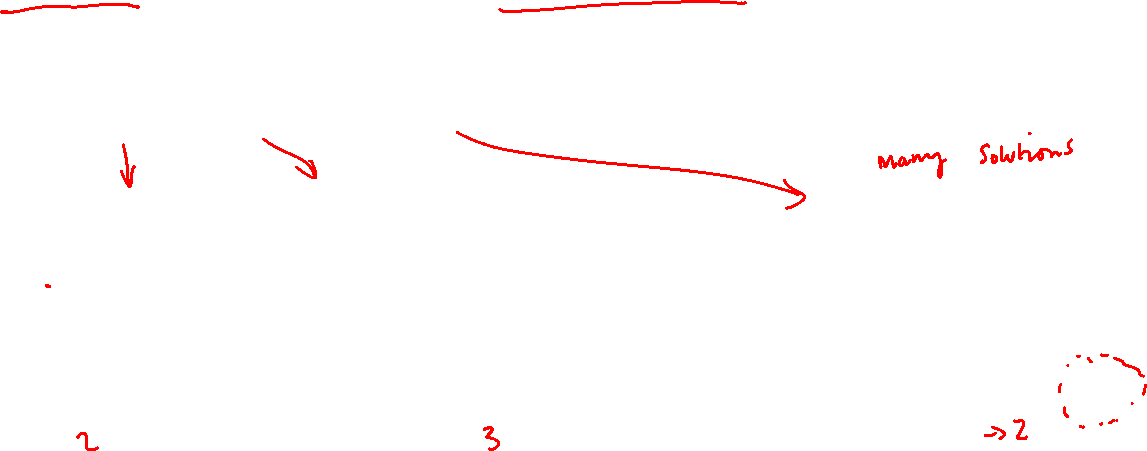 many solutions
2 3 → 2